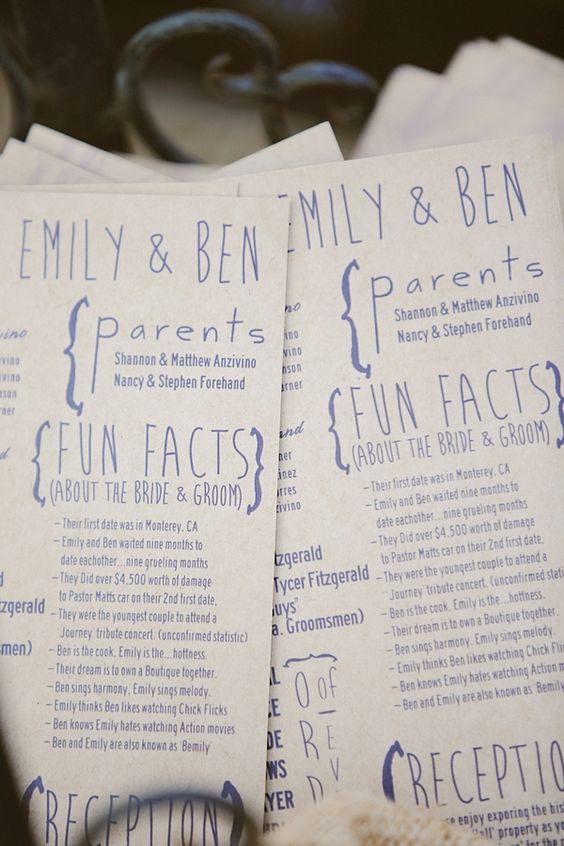 EMILY & BEN
parents
Shannon & Matthew Anzivino
Nancy & Stephen Forehand
FUN FACTS
(ABOUT THE BRIDE & GROOM)
– Their first date was in Monterey, CA
– Emily and Ben waited nine months to
date eachother...nine grueling months
– They Did over $4,500 worth of damage
to Pastor Matts car on their 2nd first date.
– They were the youngest couple to attend a
'Journey' tribute concert. (unconfirmed statistic)
– Ben is the cook, Emily is the...hottness.
– Their dream is to own a Boutique together.
– Ben sings harmony, Emily sings melody.
– Emily thinks Ben likes watching Chick Flicks
– Ben knows Emily hates watching Action movies
– Ben and Emily are also known as 'Bemily
RECEPTION
zgerald
men)
EMILY & BEN
parents
Shannon & Matthew Anzivino
Nancy & Stephen Forehand
FUN FACTS
(ABOUT THE BRIDE & GROOM)
– Their first date was in Monterey, CA
– Emily and Ben waited nine months to
date eachother...nine grueling months
– They Did over $4,500 worth of damage
to Pastor Matts car on their 2nd first date.
– They were the youngest couple to attend a
'Journey' tribute concert. (unconfirmed statis
– Ben is the cook, Emily is the...hottness.
– Their dream is to own a Boutique together.
– Ben sings harmony, Emily sings melody.
– Emily thinks Ben likes watching Chick Fli
– Ben knows Emily hates watching Action m
– Ben and Emily are also known as 'Bemily
RECEPTIO
e enjoy exporing the his
property as yo
tzgerald
Tycer Fitzgerald
uys"
a. Groomsmen)
O of
RE
DV
WS
AYER